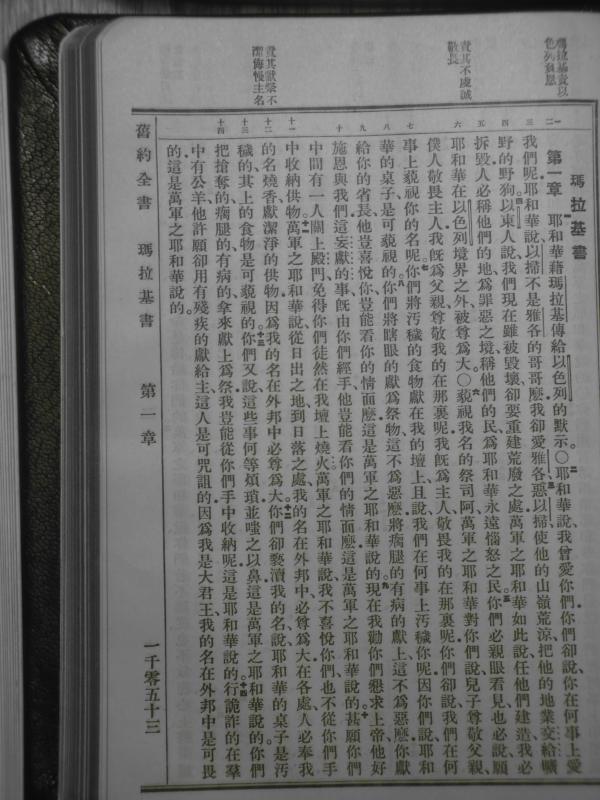 瑪拉基責以
色列負恩
責其不虔誠
敬長
責其獻祭不
潔侮慢主名
瑪拉基書
第一章 一耶和華藉瑪拉基傳給以色列的默示〇二耶和華說、我曾愛你們、你們卻說、你在何事上愛
我們呢、耶和華說、以掃不是雅各的哥哥麼、我卻愛雅各、三惡以掃、使他的山嶺荒涼、把他的地業交給曠
野的野狗、四以東人說、我們現在雖被毀壞、卻要重建荒廢之處、萬軍之耶和華如此說、任他們建造、我必
拆毀、人必稱他們的地爲罪惡之境、稱他們的民爲耶和華永遠惱怒之民、五你們必親眼看見、也必說、願
耶和華在以色列境界之外被尊爲大〇六藐視我名的祭司阿、萬軍之耶和華對你們說、兒子尊敬父親、
僕人敬畏主人、我旣爲父親、尊敬我的在那裏呢、我旣爲主人、敬畏我的在那裏呢、你們卻說、我們在何
事上藐視你的名呢、七你們將汚穢的食物獻在我的壇上、且說、我們在何事上汚穢你呢、因你們說、耶和
華的桌子是可藐視的、八你們將瞎眼的獻爲祭物、這不爲惡麼、將瘸腿的有病的獻上、這不爲惡麼、你獻
給你的省長、他豈喜悅你、豈能看你的情面麼、這是萬軍之耶和華說的、九現在我勸你們懇求上帝、他好
施恩與我們、這妄獻的事、旣由你們經手、他豈能看你們的情面麼、這是萬軍之耶和華說的、十甚願你們
中間有一人關上殿門、免得你們徒然在我壇上燒火、萬軍之耶和華說、我不喜悅你們、也不從你們手
中收納供物、十一萬軍之耶和華說、從日出之地、到日落之處、我的名在外邦中必尊爲大、在各處、人必奉我
的名燒香、獻潔淨的供物、因爲我的名在外邦中必尊爲大、十二你們卻褻瀆我的名、說、耶和華的桌子是汚
穢的、其上的食物是可藐視的、十三你們又說、這些事何等煩瑣、並嗤之以鼻、這是萬軍之耶和華說的、你們
把搶奪的、瘸腿的、有病的、拿來獻上爲祭、我豈能從你們手中收納呢、這是耶和華說的、十四行詭詐的在羣
中有公羊、他許願卻用有殘疾的獻給主、這人是可咒詛的、因爲我是大君王、我的名在外邦中是可畏
的、這是萬軍之耶和華說的。
舊約全書 瑪拉基書 第一章 一千零五十三